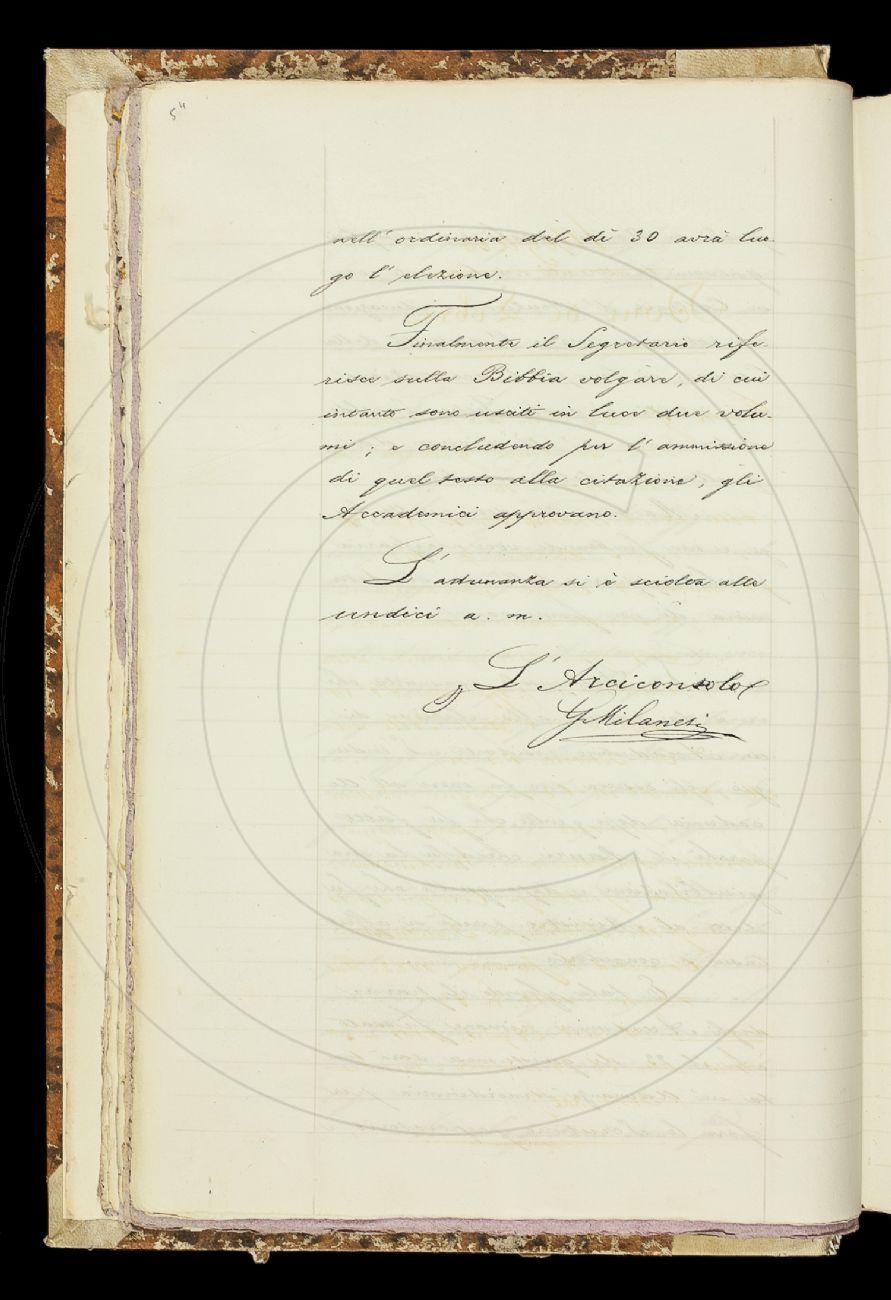 54
nell' ordinaria del dì 30 avrà luo-
go l' elezione.
Finalmente il Segretario rife-
risce sulla Bibbia volgare, di cui
intanto sono usciti in luce due volu-
mi; e concludendo per l' ammissione
di quel testo alla citazione, gli
Accademici approvano.
L' adunanza si è sciolta alle
undici a. m.
L' Arciconsolo
G Milanesi